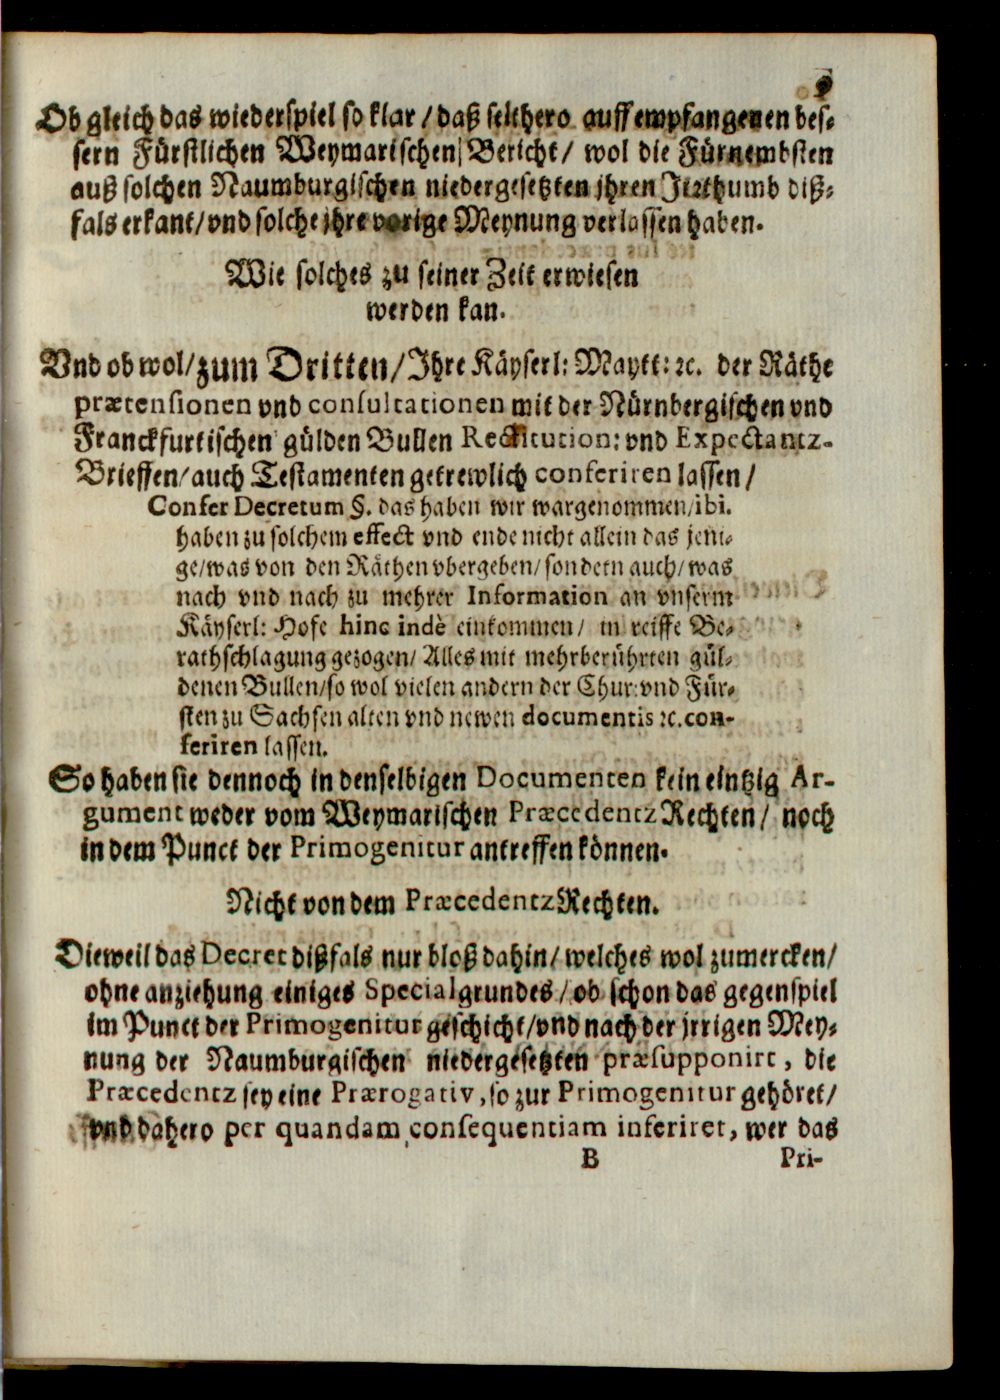 9
Ob gleich das wiederspiel so klar / daß seithero auff empfangenen bes-
sern Fürstlichen Weymarischen Bericht / wol die Fürnembsten
auß solchen Naumburgischen niedergesetzten jhren Jrrthumb diß-
fals erkant / vnd solche jhre vorige Meynung verlassen haben.
Wie solches zu seiner Zeit erwiesen
werden kan.
Vnd ob wol / zum Dritten / Jhre Käyserl: Maytt: ꝛc. der Räthe
prætensionen vnd consultationen mit der Nürnbergischen vnd
Franckfurtischen gülden Bullen Restitution: vnd Expectantz-
Brieffen / auch Testamenten getrewlich conferiren lassen /
Confer Decretum §. das haben wir wargenommen / ibi.
haben zu solchem effect vnd ende nicht allein das jeni-
ge / was von den Räthen vbergeben / sondern auch / was
nach vnd nach zu mehrer Information an vnserm
Käyserl: Hofe hinc indè einkommen / in reiffe Be-
rathschlagung gezogen / Alles mit mehrberührten gül-
denen Bullen / so wol vielen andern der Chur: vnd Für-
sten zu Sachsen alten vnd newen documentis ꝛc. con-
feriren lassen.
So haben sie dennoch in denselbigen Documenten kein eintzig Ar-
gument weder vom Weymarischen Præcedentz Rechten / noch
in dem Punct der Primogenitur antreffen können.
Nicht von dem Præcedentz Rechten.
Dieweil das Decret dißfals nur bloß dahin / welches wol zumercken /
ohne anziehung einiges Specialgrundes / ob schon das gegenspiel
im Punct der Primogenitur geschicht / vnd nach der jrrigen Mey-
nung der Naumburgischen niedergesetzten præsupponirt, die
Præcedentz sey eine Prærogativ, so zur Primogenitur gehöret /
vnd dahero per quandam consequentiam inferiret, wer das
B Pri-